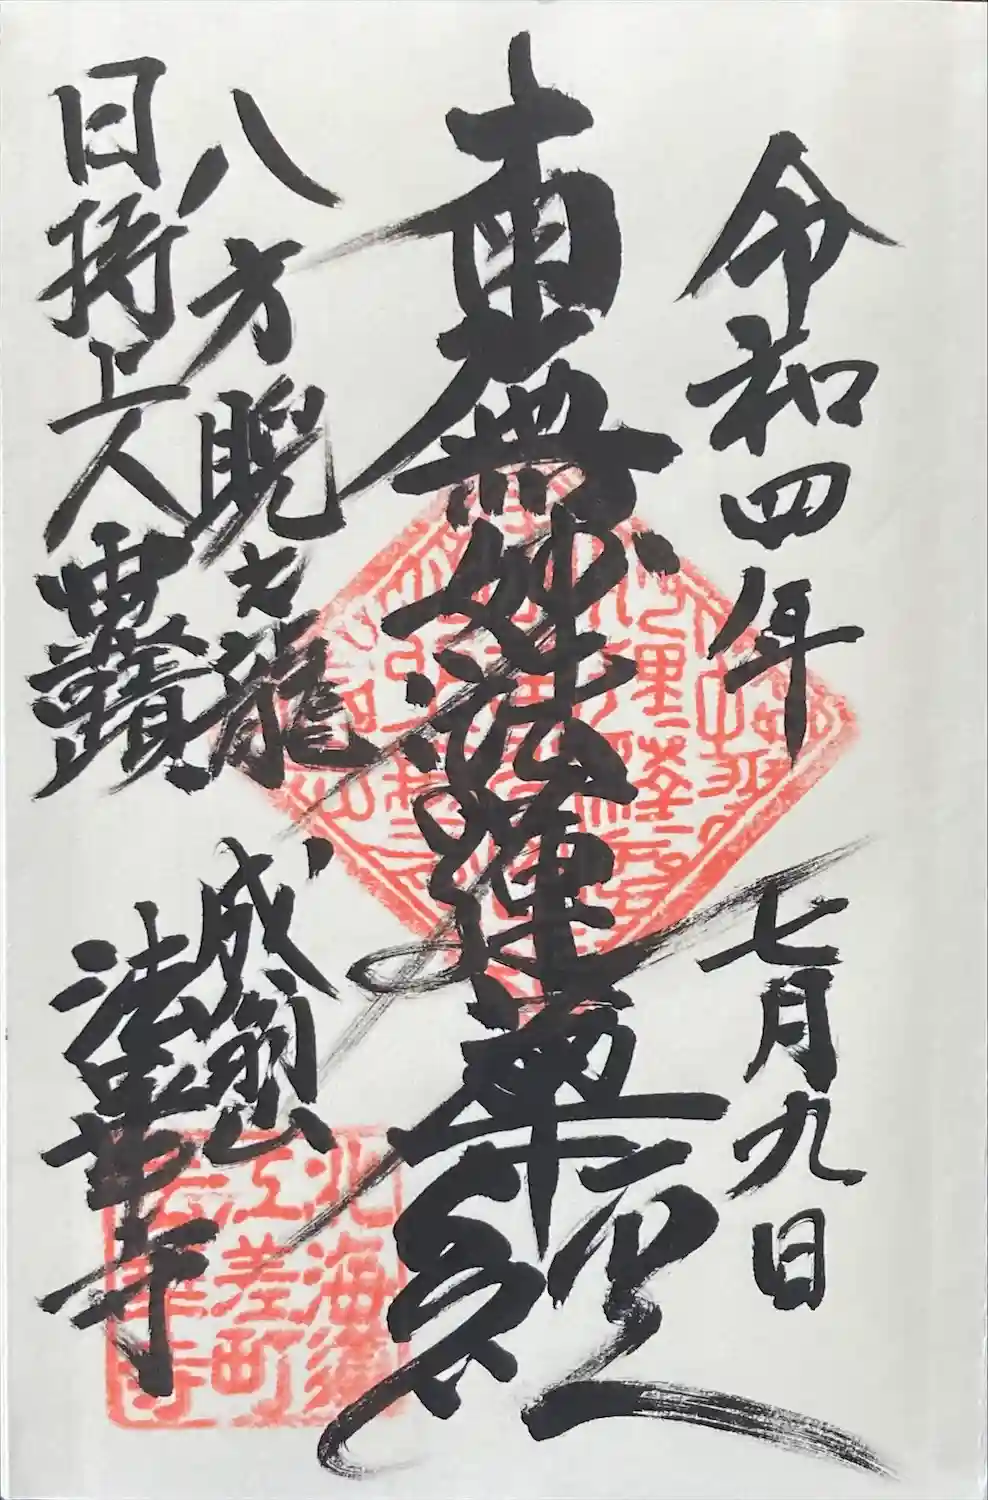 令和四年 七月九日
南無妙法蓮華経
八方睨之龍 成翁山
日持上人霊蹟 法華寺
北海道
江差町
法華寺